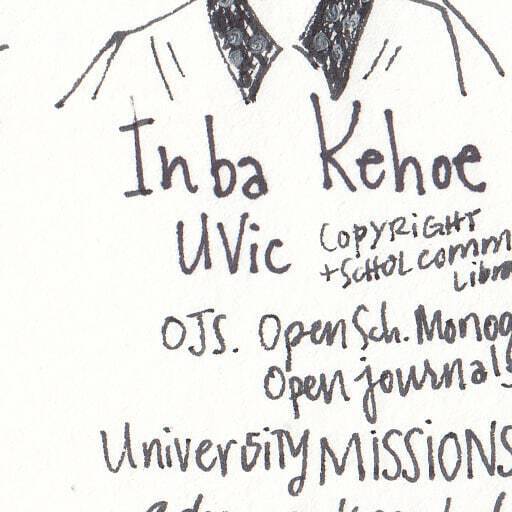 Inba Kehoe
UVic
COPYRIGHT
+ SCHOLcomm
Libra
OJS. Open Sch. Monog
Open journals
University MISSIONS